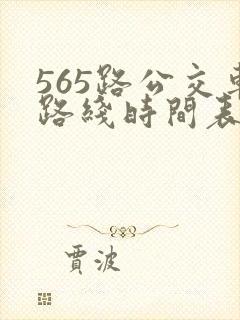 565路公交車
路綫時間表
賈波